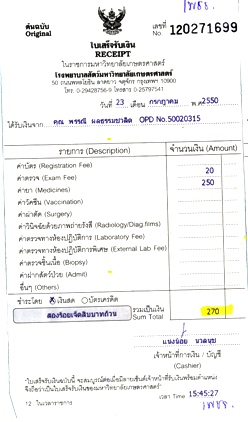 ต้นฉบับ
Original
เลขที่ 120271699
No.
ใบเสร็จรับเงิน
RECEIPT
ในราชการมหาวิทยาลัยเกษตรศาสตร์
โรงพยาบาลสัตว์มหาวิทยาลัยเกษตรศาสตร์
50 ถนนพหลโยธิน ลาดยาว จตุจักร กรุงเทพฯ 10900
โทร. 0-29428756-9 โทรสาร 0-25797541
วันที่ 23 เดือน กรกฎาคม พ.ศ. 2550
ได้รับเงินจาก คุณ พรรณี OPD No.50020315
รายการ (Description) จำนวนเงิน (Amount)
ค่าบัตร (Registration Fee) 20
ค่าตรวจ (Exam Fee) 250
ค่ายา (Medicines)
ค่าวัคซีน (Vaccination)
ค่าผ่าตัด (Surgery)
ค่าวินิจฉัยด้วยภาพถ่ายรังสี (Radiology/Diag.films)
ค่าตรวจทางห้องปฏิบัติการ (Laboratory Fee)
ค่าตรวจทางห้องปฏิบัติการพิเศษ (External Lab Fee)
ค่าตรวจชิ้นเนื้อ (Biopsy)
ค่าฝากสัตว์ป่วย (Admit)
อื่นๆ (Others)
ชำระโดย เงินสด บัตรเครดิต
สองร้อยเจ็ดสิบบาทถ้วน รวมเป็นเงิน 270
Sum Total
แน่งน้อย นวลนุช
เจ้าหน้าที่การเงิน / บัญชี
(Cashier)
"ใบเสร็จรับเงินฉบับนี้ จะสมบูรณ์ต่อเมื่อมีลายเซ็นต์เจ้าหน้าที่รับเงินพร้อมตำแหน่ง
จึงถือว่าเป็นใบเสร็จรับเงินของมหาวิทยาลัยเกษตรศาสตร์"
เวลา Time 15:45:27
12 ในเวลาราชการ